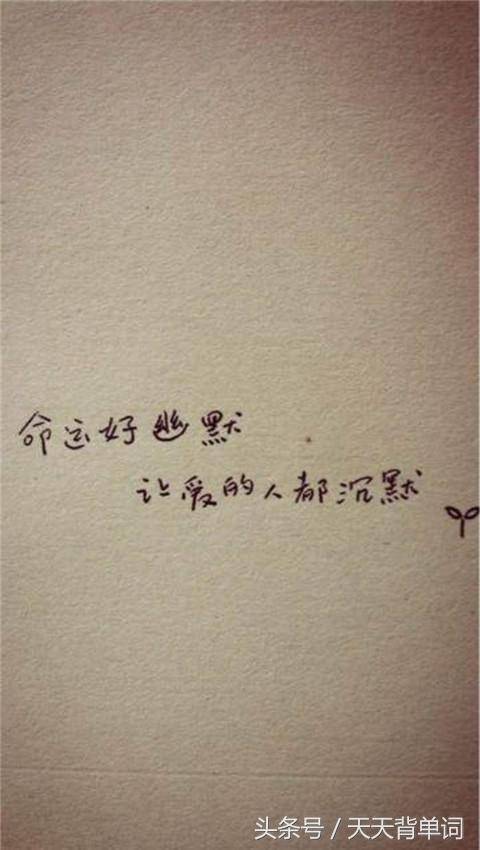 命运好幽默
让爱的人都沉默
头条号 / 天天背单词